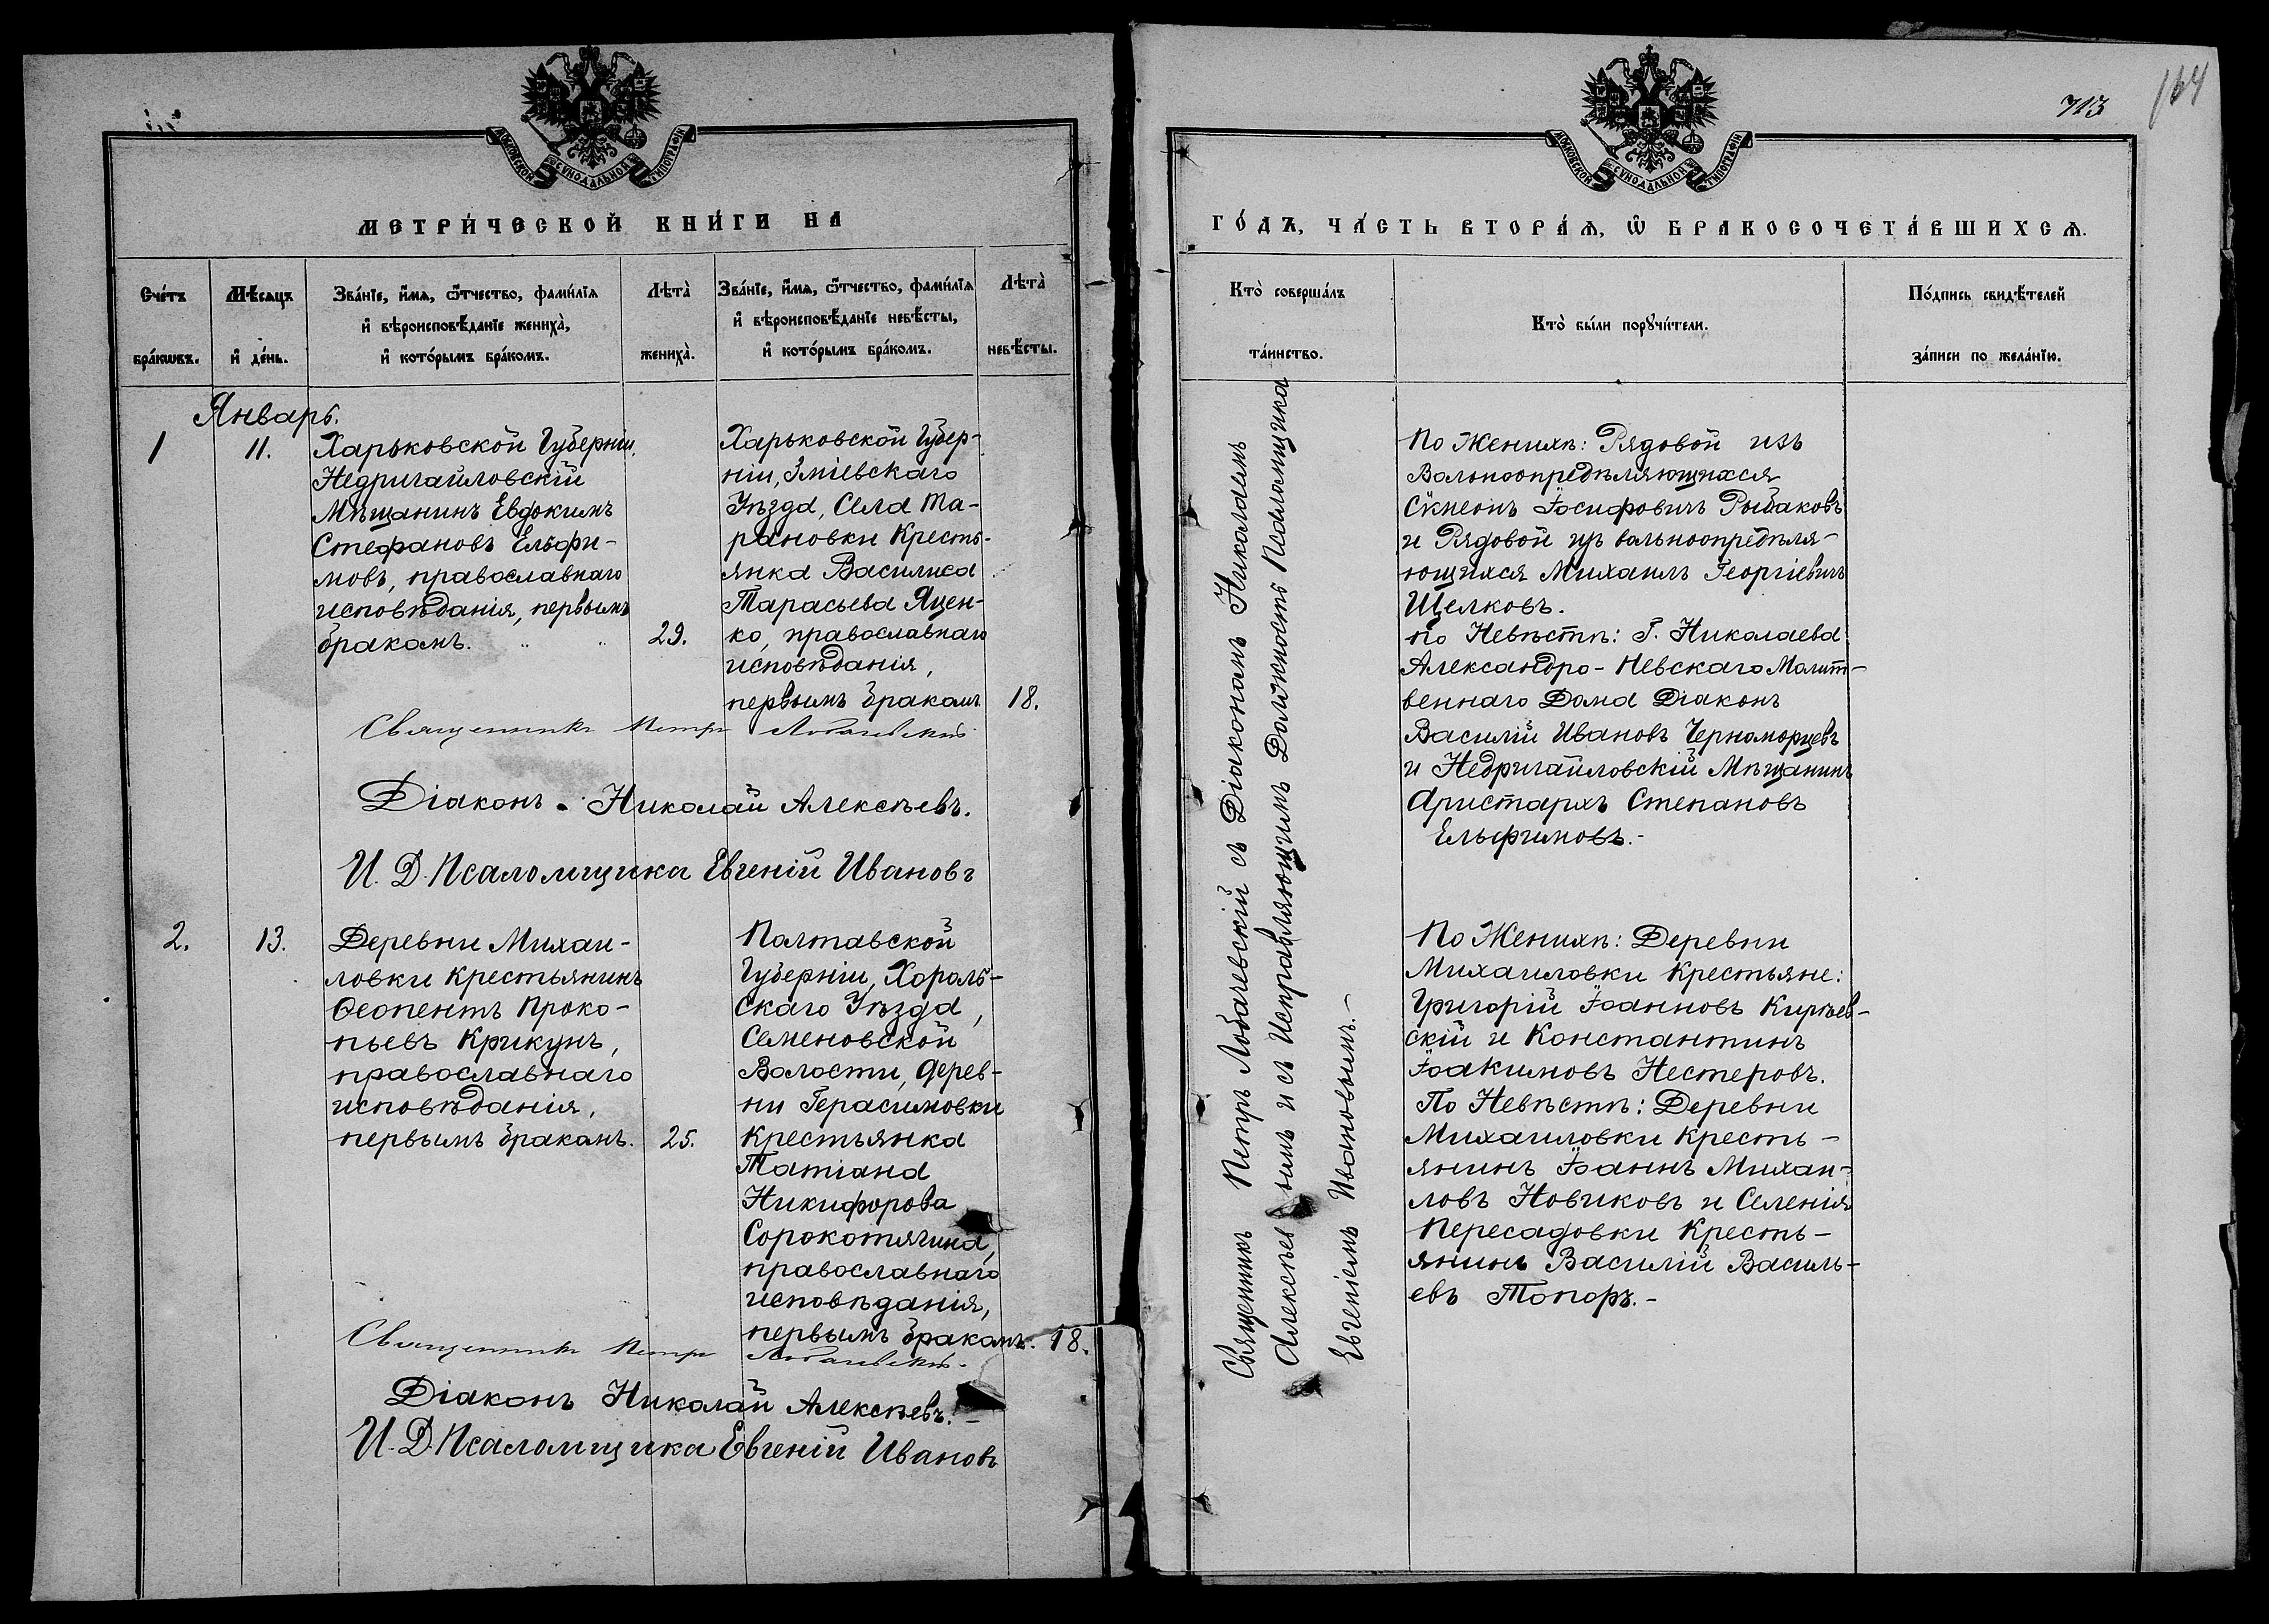 МОСКОВСКОЙ СѴНОДАЛЬНОЙ ТИПОГРАФІИ
МЕТРИ́ЧЕСКОЙ КНИ́ГИ НА
Сче́тъ бра́кѡвъ.
Мѣ́сяцъ и҆ де́нь.
Зва́нїе, и҆́мѧ, ѻ҆́тчество, фами́лїѧ
и҆ вѣроисповѣ́данїе жениха̀,
и҆ кото́рымъ бра́комъ.
Лѣта̀ жениха̀.
Зва́нїе, и҆́мѧ, ѻ҆́тчество, фами́лїѧ
и҆ вѣроисповѣ́данїе невѣ́сты,
и҆ кото́рымъ бра́комъ.
Лѣта̀ невѣ́сты.
Январь.
1
11.
Харьковской Губерніи,
Недригайловскій
Мѣщанинъ Евдокимъ
Стефановъ Ельфи-
мовъ, православнаго
исповѣданія, первымъ
бракомъ. " "
29.
Харьковской Губер-
ніи, Зміевскаго
Уѣзда, Села Та-
рановки Кресть-
янка Василиса
Тарасьева Яцен-
ко, православнаго
исповѣданія,
первымъ бракомъ
18.
Священникъ Петръ Лобачевскій
Діаконъ Николай Алексѣевъ.
И. Д. Псаломщика Евгеній Ивановъ
2.
13.
Деревни Михаи-
ловки Крестьянинъ
Ѳеопентъ Проко-
пьевъ Крикунъ,
православнаго
исповѣданія,
первымъ бракомъ.
25.
Полтавской
Губерніи, Хороль-
скаго Уѣзда,
Семеновской
Волости, Дерев-
ни Герасимовки
Крестьянка
Татіана
Никифорова
Сорокотягина,
православнаго
исповѣданія,
первымъ бракомъ.
18.
Священникъ Петръ Лобачевскій
Діаконъ Николай Алексѣевъ.-
И. Д. Псаломщика Евгеній Ивановъ
713
164
МОСКОВСКОЙ СѴНОДАЛЬНОЙ ТИПОГРАФІИ
ГО́ДЪ, ЧА́СТЬ ВТОРА́Ѧ, Ѡ҆ БРАКОСОЧЕТА́ВШИХСѦ.
Кто̀ соверша́лъ
та́инство.
Кто̀ бы́ли порꙋчи́тели.
По́дпись свидѣ́телей
за́писи по жела́нїю.
Священникъ Петръ Лобачевскій съ Діакономъ Николаемъ
Алексѣевымъ и съ Исправляющимъ Должность Псаломщика
Евгеніемъ Ивановымъ.-
По Женихѣ: Рядовой изъ
Вольноопредѣляющихся
Сѵмеонъ Іосифовичъ Рыбаковъ
и Рядовой изъ вольноопредѣля-
ющихся Михаилъ Георгіевичъ
Щелковъ.
по Невѣстѣ: Г. Николаева
Александро-Невскаго Молит-
веннаго Дома Діаконъ
Василій Ивановъ Черноморцевъ
и Недригайловскій Мѣщанинъ
Аристархъ Степановъ
Ельфимовъ.-
По Женихѣ: Деревни
Михаиловки Крестьяне:
Григорій Іоанновъ Кирѣев-
скій и Константинъ
Іоакимовъ Нестеровъ.
По Невѣстѣ: Деревни
Михаиловки Кресть-
янинъ Іоаннъ Михаи-
ловъ Новиковъ и Селенія
Пересадовки Кресть-
янинъ Василій Василь-
евъ Топоръ.-